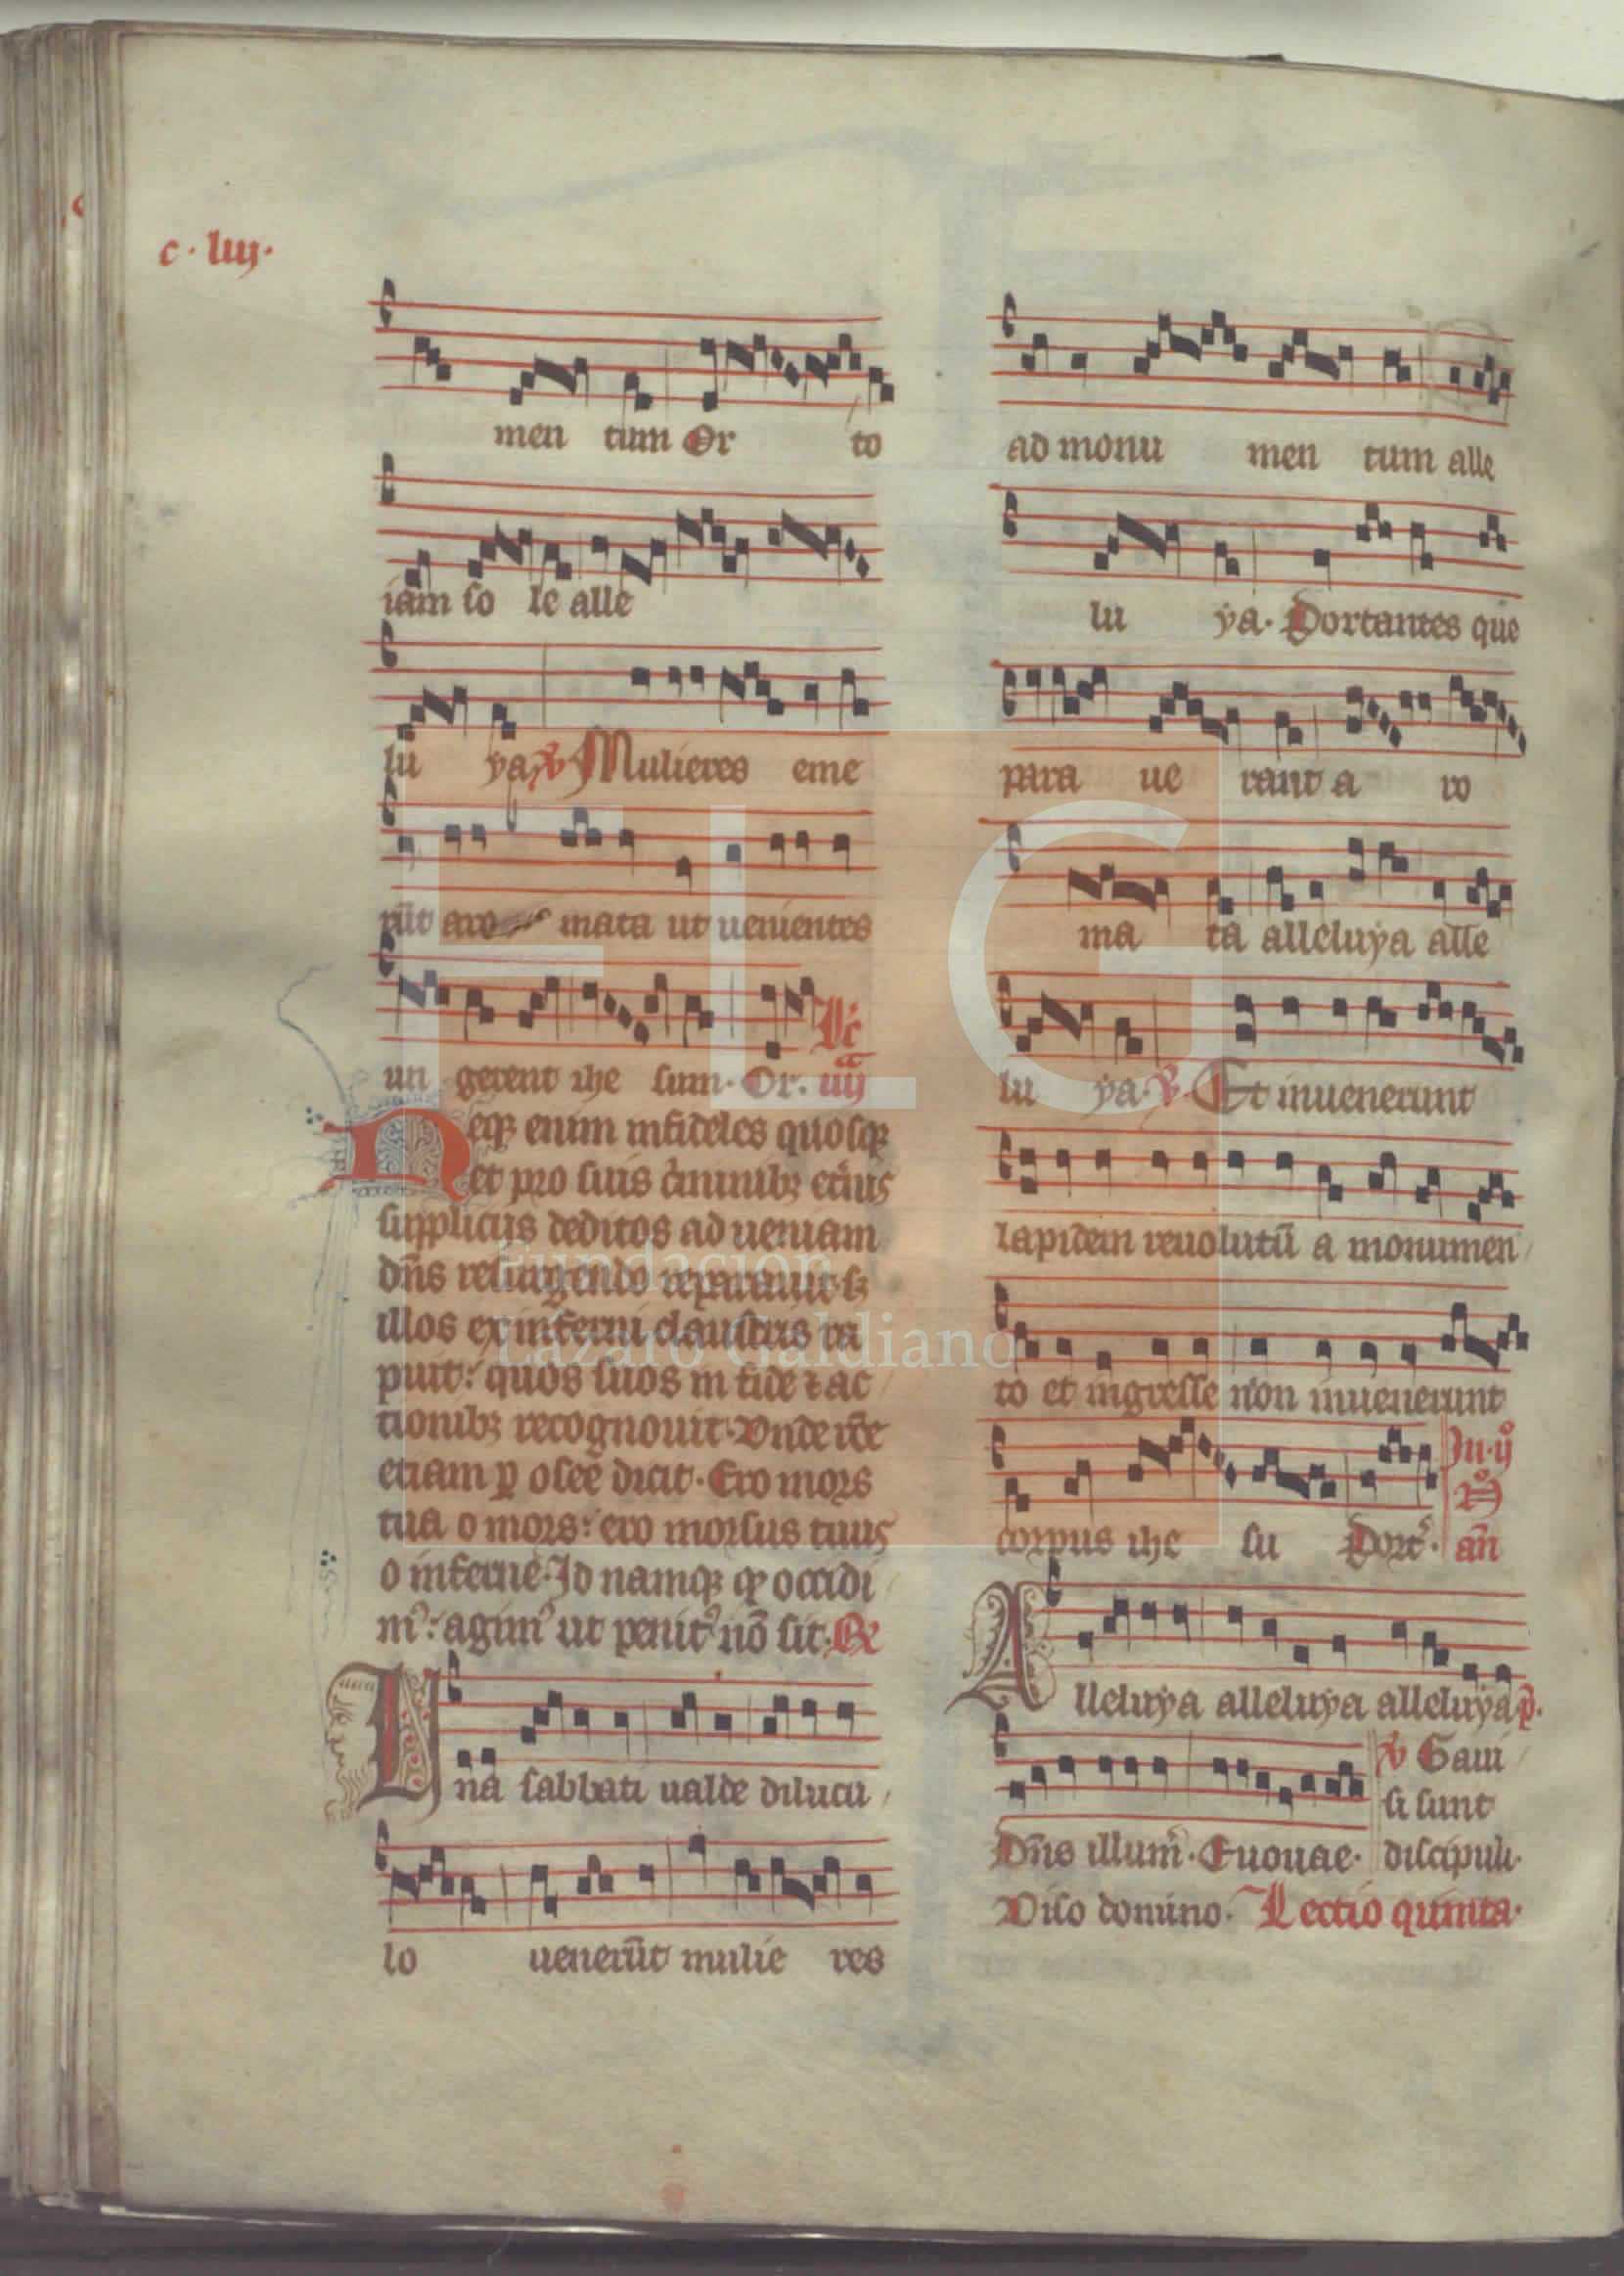 c · liij·
men tum Or to
iam so le alle
lu ya. V Mulieres eme
rūt aro mata ut uenientes
un gerent ihe sum· Or. Lc̄ iiij
Neqꝫ enim infideles quosqꝫ
et pro suis c̓minibꝫ et̓nis
suppliciis deditos ad ueniam
dn̄s resurgendo reparauit· sꝫ
illos ex inferni claustris ra
puit: quos suos in fide ⁊ ac
tionibꝫ recognouit· Vnde rc̄e
etiam ꝑ oseē dicit· Ero mors
tua o mors: ero morsus tuus
o inferne· Id namqꝫ qđ occidi
mꝰ: agimꝰ ut penitꝰ nō sit· R
Una sabbati ualde dilucu
lo uenerūt mulie res
ad monu men tum alle
lu ya· Portantes que
para ue rant a ro
ma ta alleluya alle
lu ya· V· Et inuenerunt
lapidem reuolutū a monumen
to et ingresse non inuenerunt
corpus ihe su Port̓· In· ijº nº an̄
Alleluya alleluya alleluya p̄·
Dn̄s illum̄· Euouae· V Gaui
si sunt
discipuli·
Viso domino· Lectio quinta·
FLG
Fundación
Lázaro Galdiano